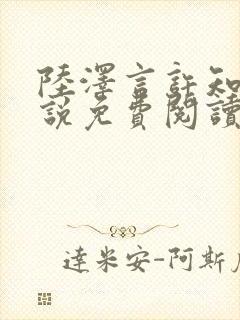 陸澤言許知
說免費閱讀
達米安-阿斯